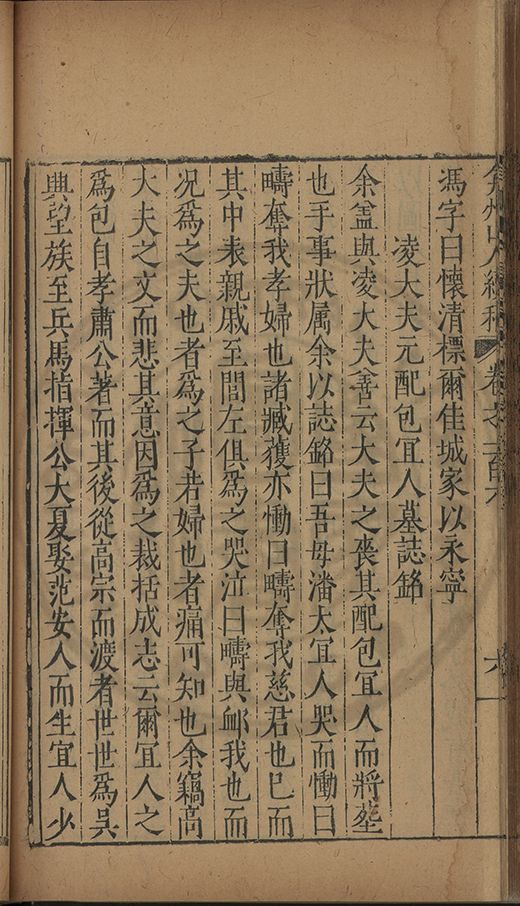 馮字曰懷清標爾佳城家以永寧
凌大夫元配包宜人墓誌銘
余盖與凌大夫善云大夫之喪其配包宜人而將塟
也手事狀属余以誌銘曰吾母潘太宜人哭而慟曰
疇奪我孝婦也諸臧獲亦慟曰疇奪我慈君也巳而
其中表親戚至閭左俱爲之哭泣曰疇與衈我也而
况爲之夫也者爲之子若婦也者痛可知也余竊高
大夫之文而悲其意因爲之裁括成志云爾宜人之
爲包自孝肅公著而其後從高宗而渡者世世爲吳
興望族至兵馬指揮公大夏娶范安人而生宜人少